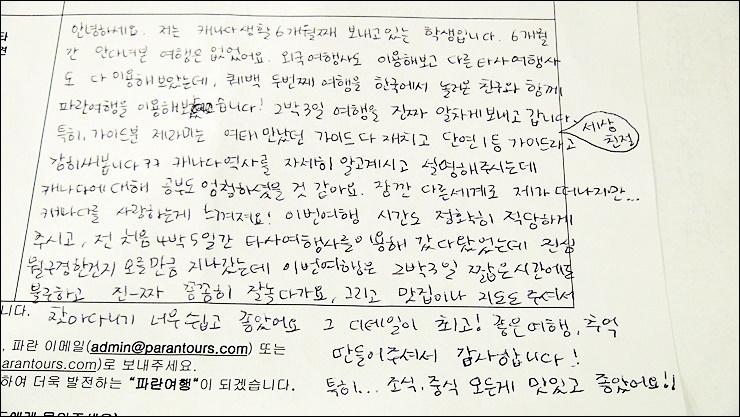 타
견
안녕하세요. 저는 캐나다 생활 6개월째 보내고있는 학생입니다. 6개월
간 안다녀본 여행은 없었어요. 외국여행사도 이용해보고 다른 타사여행사
도 다 이용해보았는데, 퀘백 두번째 여행을 한국에서 놀러온 친구와 함께
파란여행을 이용해보았습니다! 2박3일 여행을 진짜 알차게 보내고 갑니다.
특히, 가이드분 제라미는 여태 만났던 가이드 다 재치고 단연 1등 가이드라고
세상
친절
감히써봅니다 ㅋㅋ 캐나다역사를 자세히 알고계시고 설명해주시는데
캐나다에 대해 공부도 엄청하셨을 것 같아요. 잠깐 다른세계로 제라 떠나지만...
캐나다를 사랑하는게 느껴져요! 이번여행 시간도 정확히 적당하게
주시고, 전 처음 4박5일간 타사여행사를 이용해 갔다왔었는데 진심
뭘구경한건지 모를만큼 지나갔는데 이번여행은 2박3일 짧은시간에도
불구하고 진~짜 꼼꼼히 잘놀다가요, 그리고 맛집이나 지도도 주셔서
니다.
찾아다니기 너무 쉽고 좋았어요 그 디테일이 최고! 좋은여행, 추억
, 파란 이메일(admin@parantours.com) 또는
만들어주셔서 감사합니다!
arantours.com)로 보내주세요.
하여 더욱 발전하는 "파란여행"이 되겠습니다.
특히... 조식, 중식 모든게 맛있고 좋았어요!!